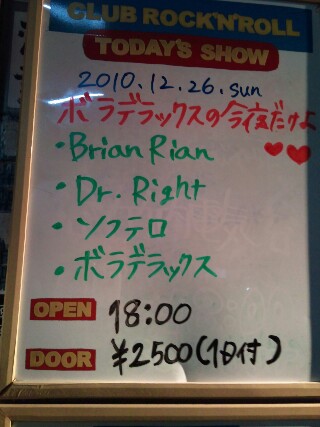 CLUB ROCK'N'ROLL
TODAY'S SHOW
2010.12.26.sun
ボラデラックスの今夜だけよ
・Brian Rian
・Dr. Right
・ソフテロ
・ボラデラックス
OPEN 18:00
DOOR ¥2500(1D付)